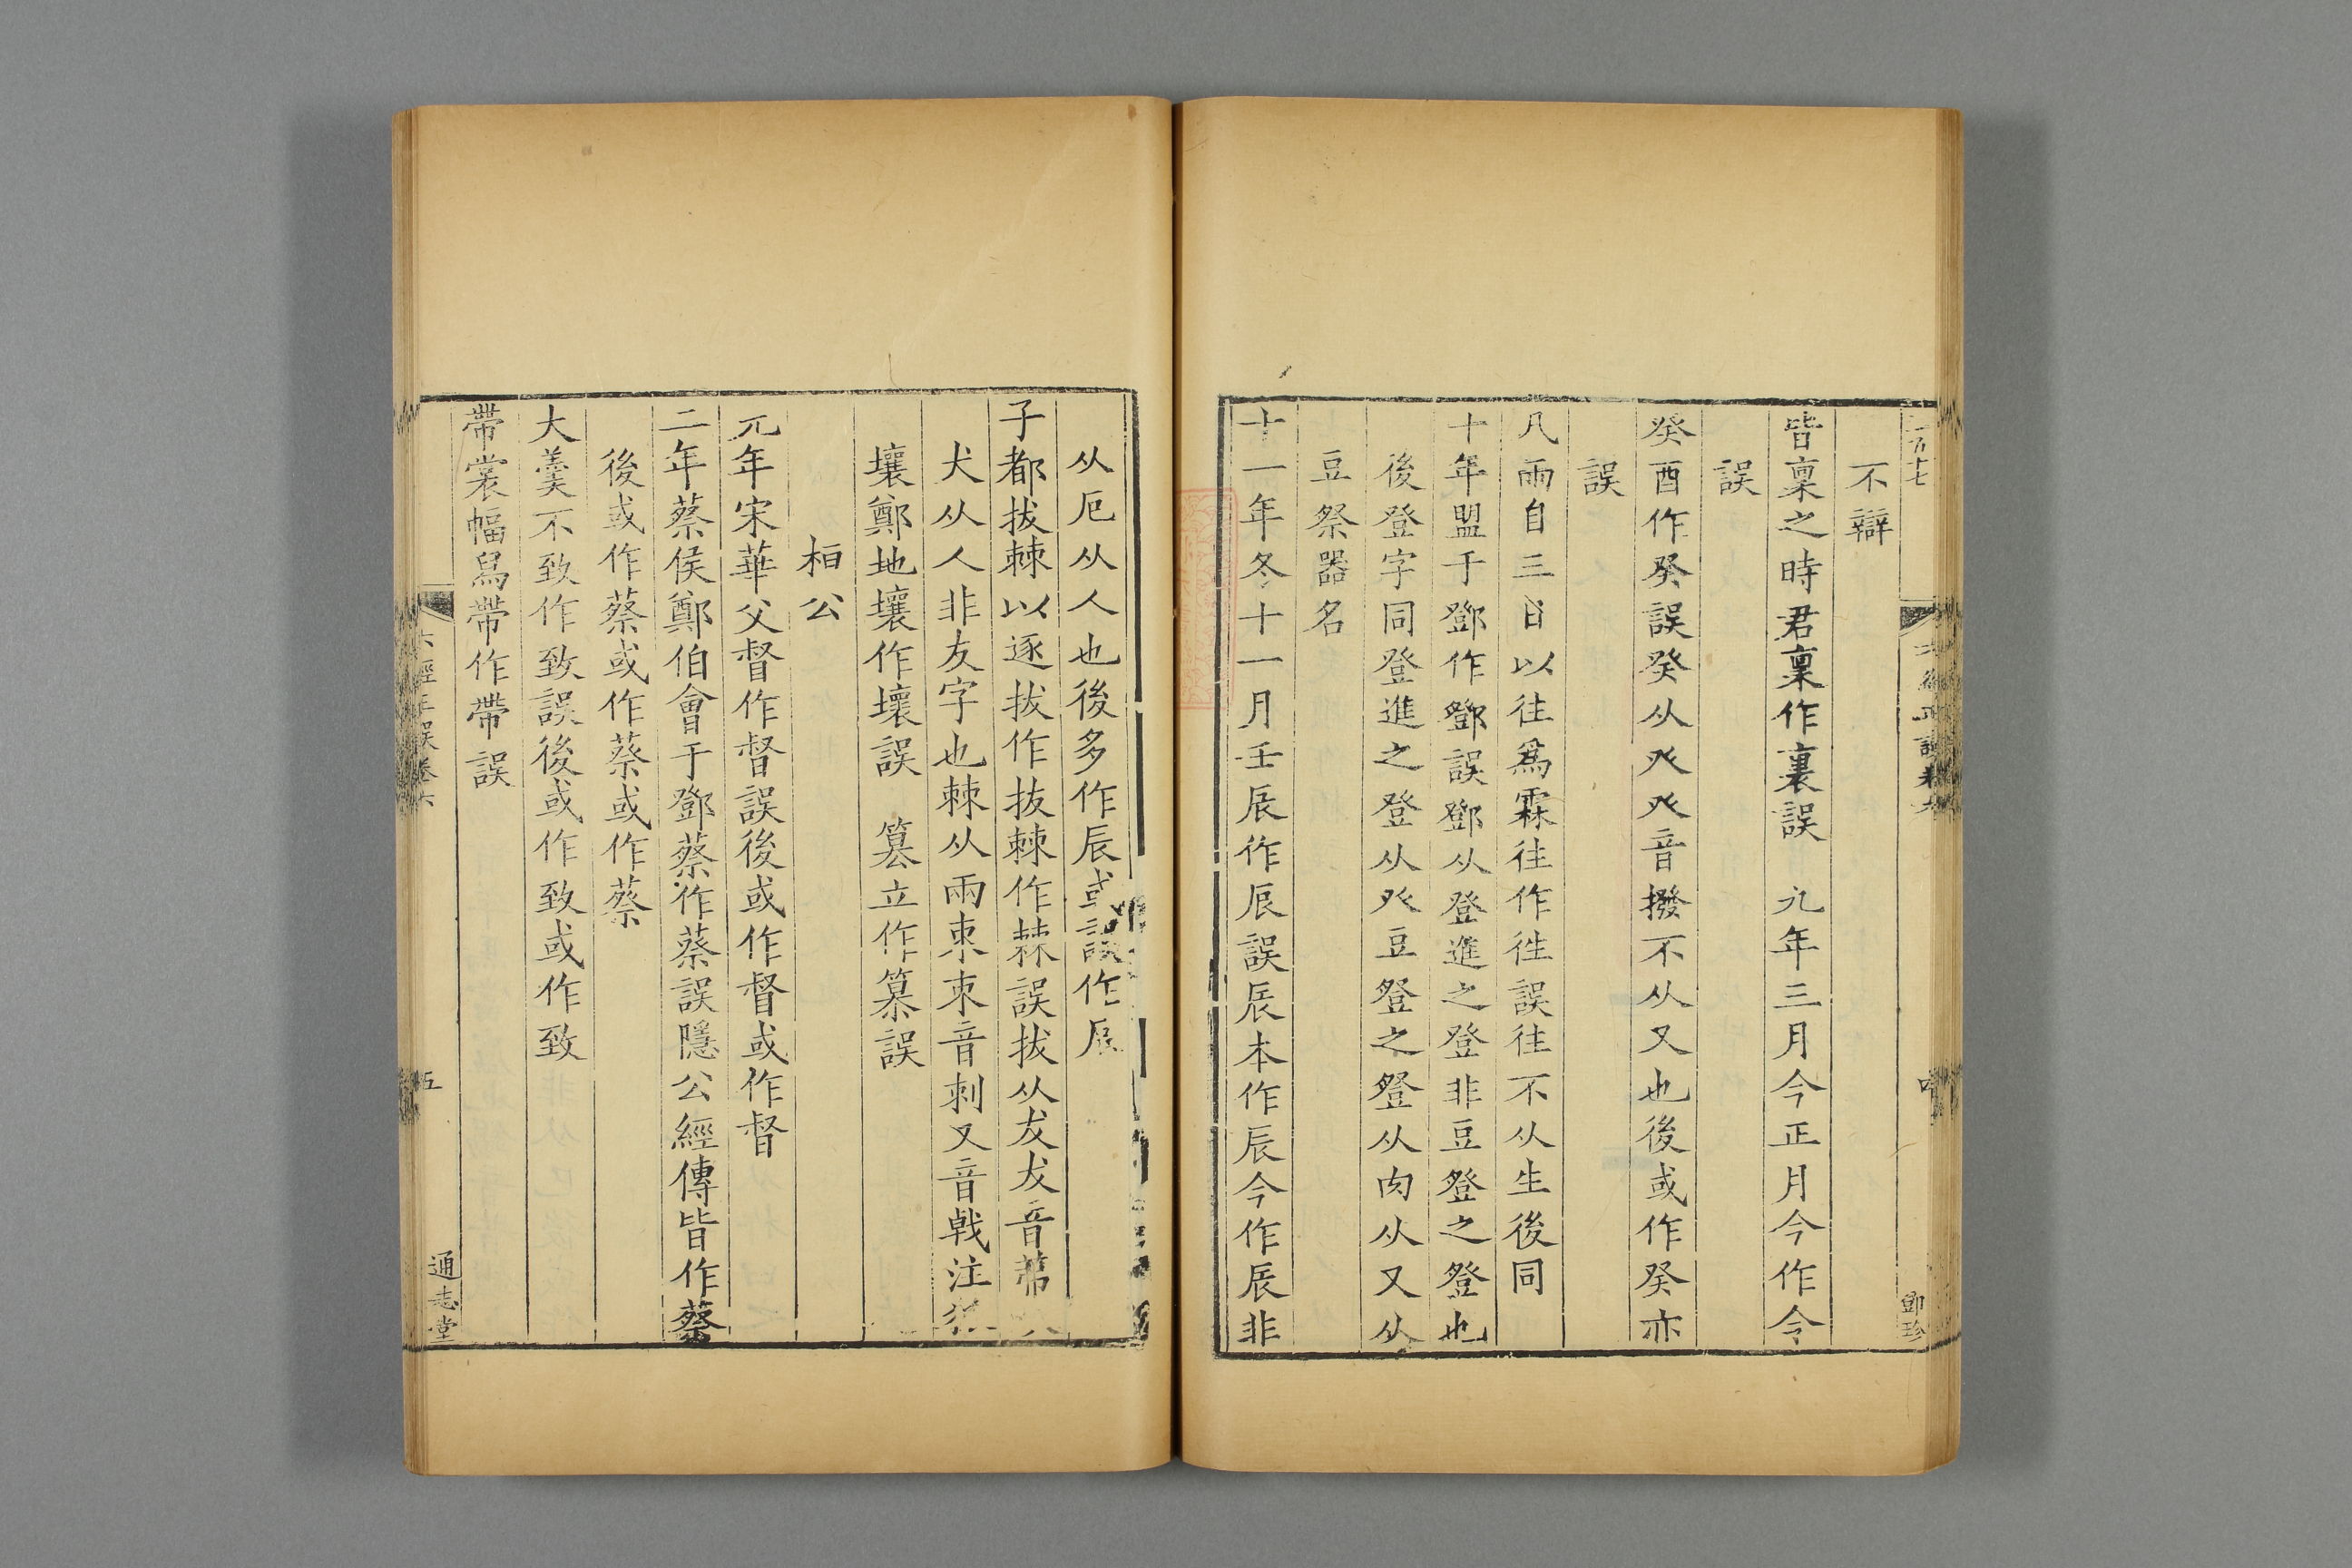 不辯
皆稟之時君稟作裏誤　九年三月今正月今作今
誤
癸酉作癸誤癸从癶癶音撥不从又也後或作癸亦
誤
凡雨自三日以往爲霖往作徃誤往不从生後同
十年盟于鄧作鄧誤鄧从登進之登非豆豋之豋也
後登字同登進之登从癶豆豋之豋从肉从又从
豆祭器名
十一年冬十一月壬辰作辰誤辰本作辰今作辰非
从厄从人也後多作辰或誤作
子都拔棘以逐拔作拔棘作棘誤拔从犮犮音
犬从人非友字也棘从兩朿朿音刺又音戟注
壤鄭地壤作壤誤　篡立作篡誤
桓公
元年宋華父督作督誤後或作督或作督
二年蔡侯鄭伯會于鄧蔡作蔡誤隱公經傳皆作蔡
後或作蔡或作蔡或作蔡
大羹不致作致誤後或作致或作致
帶裳幅舄帶作帶誤
六經正誤卷六
五
通志堂